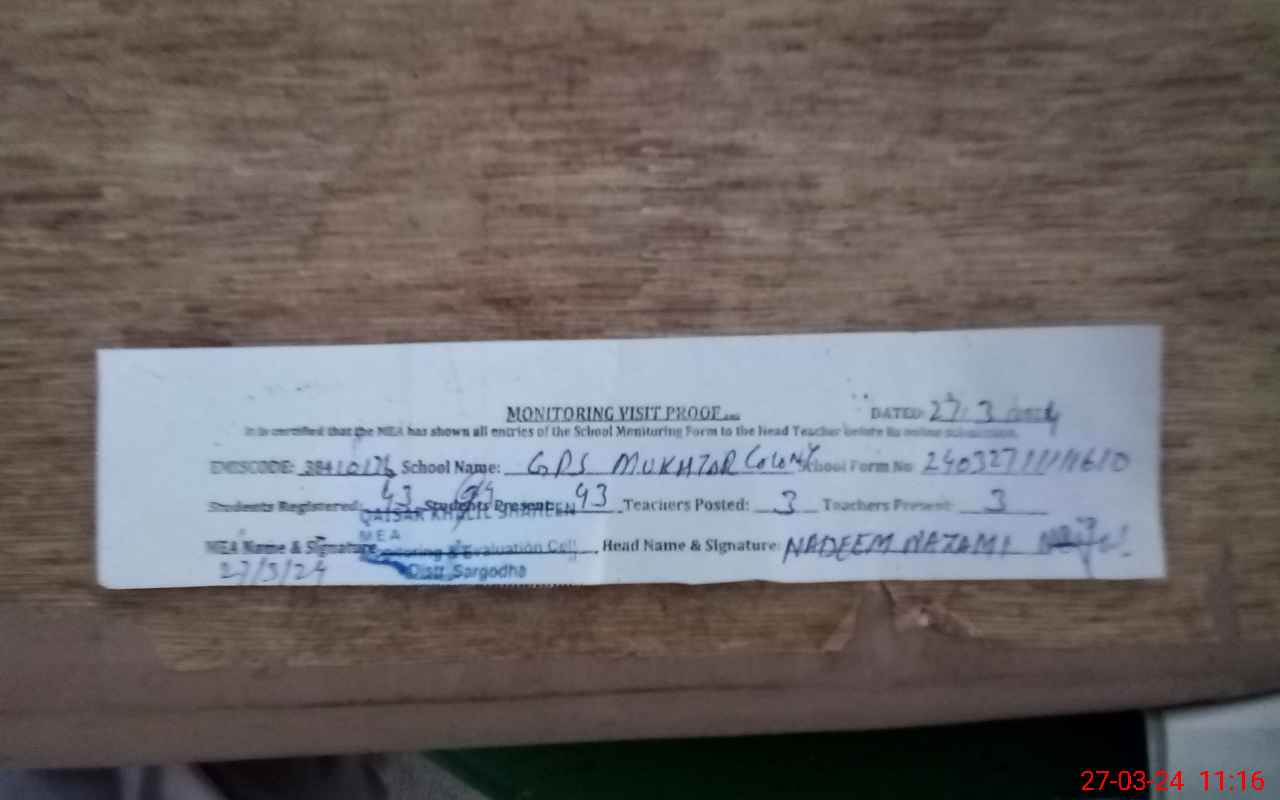 MONITORING VISIT PROOF
DATED: 27. 3
It is certified that the MEA has shown all entries of the School Monitoring Form to the Head Teacher before its online submission.
EMISCODE: 38410176 School Name: GPS MUKHTAR COLONY School Form No 240327
Students Registered: 43 Students Present: 43 Teachers Posted: 3 Teachers Present: 3
QAISAR KHALIL SHAHEEN
MEA
MEA Name & Signature Head Name & Signature: NADEEM NAZAMI
Monitoring & Evaluation Cell
Distt. Sargodha
27/3/24
27-03-24 11:16